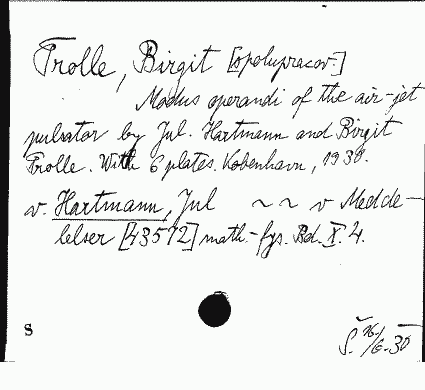 Trolle, Birgit [spolupracov.]
Modus operandi of the air-jet
pulsator by Jul. Hartmann and Birgit
Trolle. With 6 plates. København, 1930.
v. Hartmann, Jul ~ ~ v Medde-
lelser [43572] math.-fys. Bd. X. 4.
S